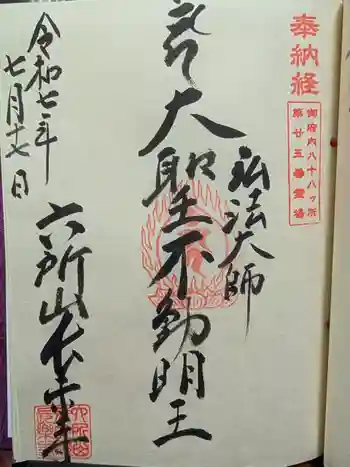 奉納経
御府内八十八ヶ所
第廿五番霊場
弘法大師
大聖不動明王
六所山長楽寺
令和七年
七月十七日